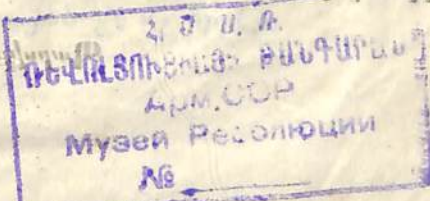 Հ. Ս. Ս. Ռ.
ՌԵՎՈԼՅՈՒՑԻԱՅԻ ԹԱՆԳԱՐԱՆ
Арм. ССР
Музей Революции
№